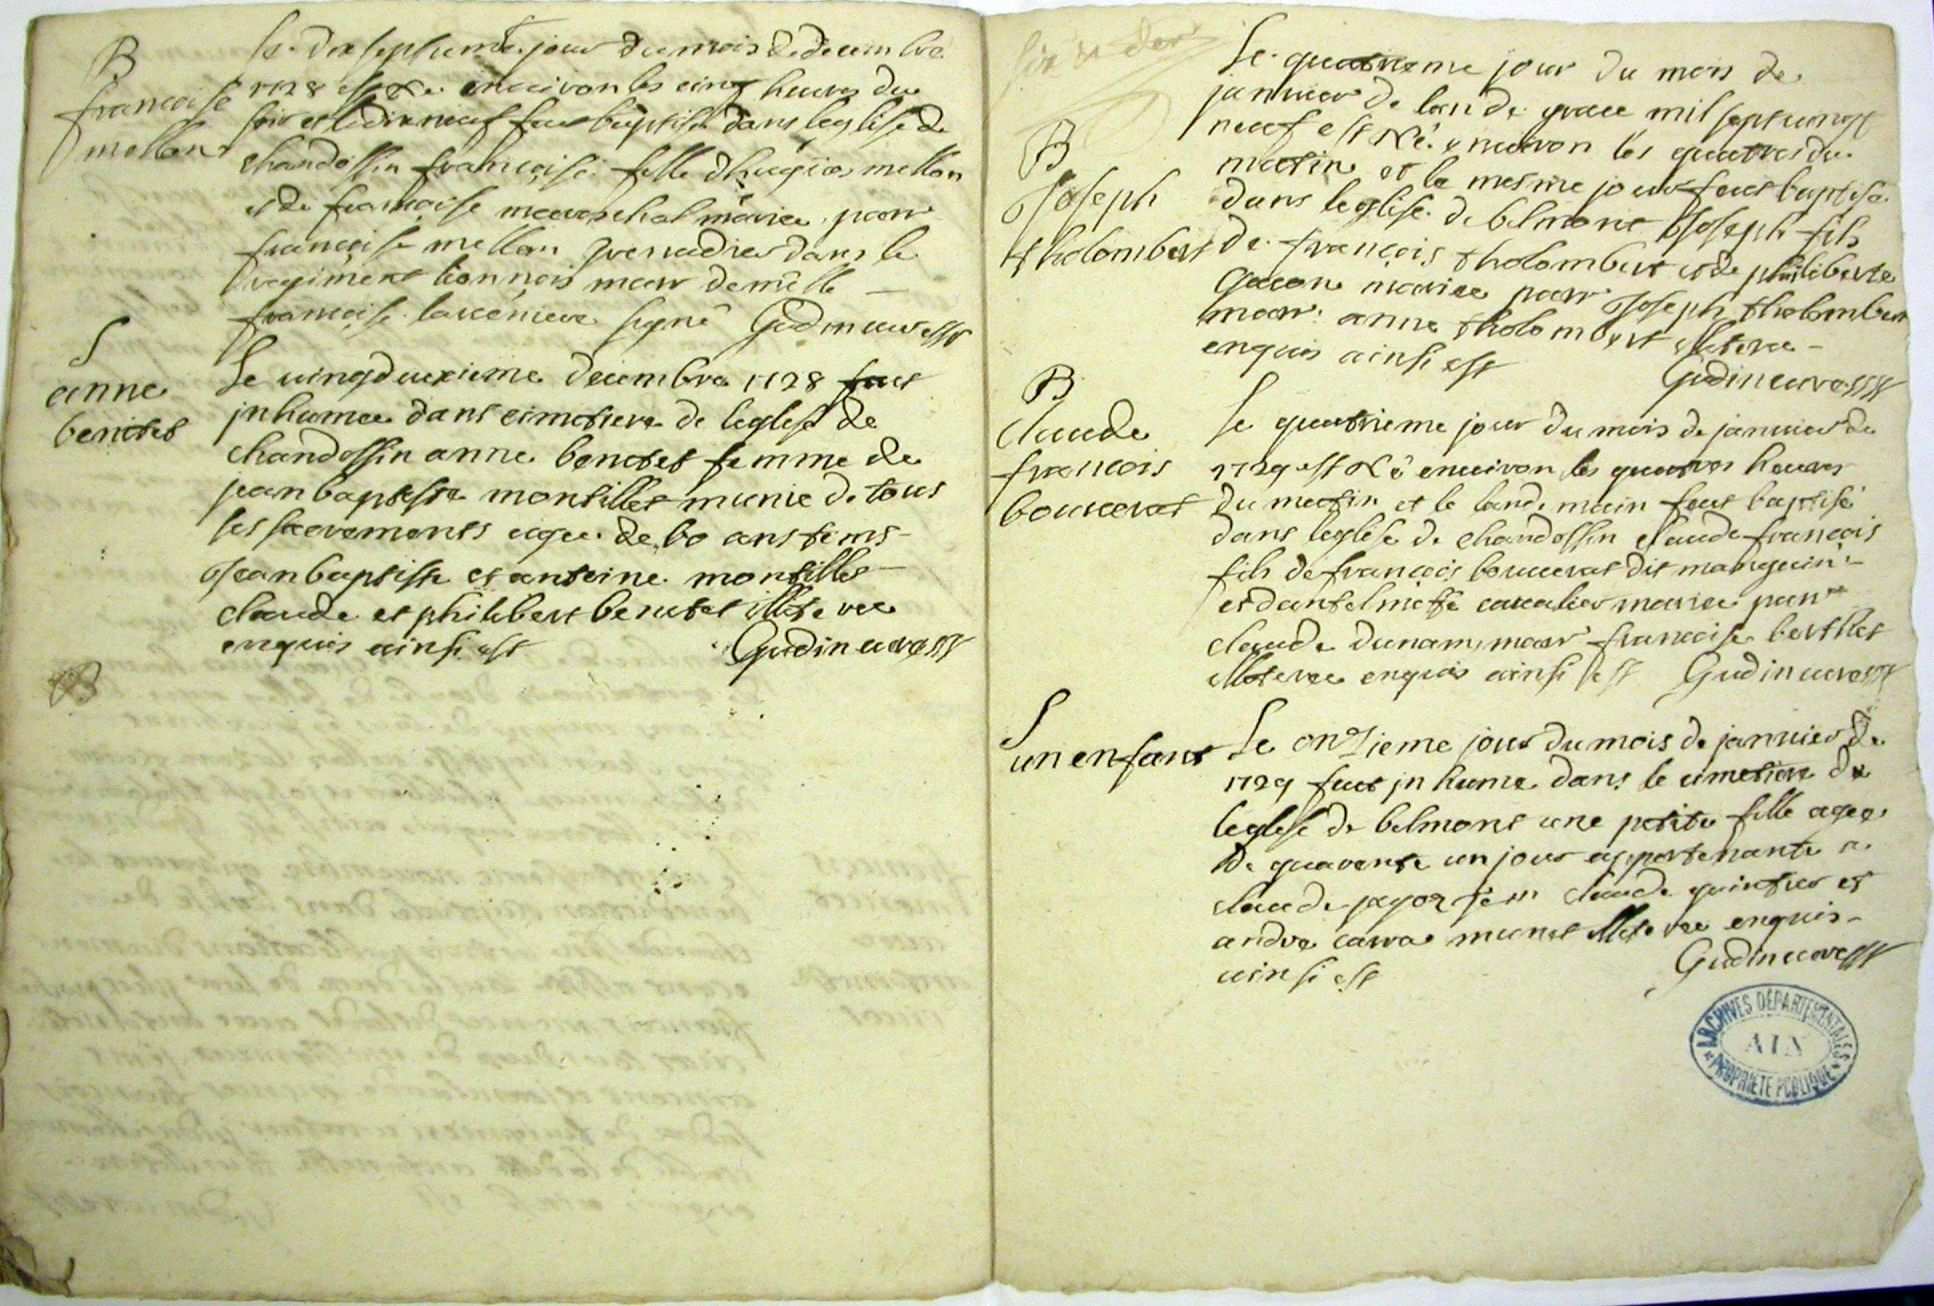 B
francoise
mellon
le dixseptieme jour du mois de decembre
1728 est né enuiron les cinq heures du
soir et le dixneuf fut baptisé dans leglise de
chandossin francoise fille dhugues mellon
et de francoise mareschal mariee parr
francoise mellon grenadier dans le
regiment lionnois marr demelle
francoise signé Gudin cure
S
anne
benetet
Le uingdeuxieme decembre 1728 fut
jnhumee dans cimetiere de leglise de
chandossin anne benetet femme de
jean baptiste montillet munie de tous
ses sacrements agee de 60 ans tems
Jean baptiste et antoine montillet
claude et philibert benetet illeteree
enquis ainsi est Gudin cure
B
B
Joseph
tholombert
Le quatrieme jour du mois de
januier de lan de grace mil sept uingt
neuf est né enuiron les quatres du
matin et le mesme jour fut baptisé
dans leglise de belmont Joseph fils
de francois tholombert et de philiberte
gacon mariee parr Joseph tholombert
marr anne tholombert illeteree
enquis ainsi est Gudin cure
B
claude
francois
bouuerat
le quatrieme jour du mois de januier de
1729 est né enuiron les quatres heures
du matin et le lande main fut baptisé
dans leglise de chandossin claude francois
fils de francois bouuerat dit manguin
et caualier mariee parr
claude dunam marr francoise berthet
illeteree enquis ainsi est Gudin cure
S
un enfant
Le onzieme jour du mois de januier de
1729 fut jnhume dans le cimetiere de
leglise de belmont une petite fille agee
de quarente un jour appartenante a
claude pegoz tem claude guintier et
andre carra munet illeteree enquis
ainsi est Gudin cure
ARCHIVES DÉPARTEMENTALES
AIN
PROPRIÉTÉ PUBLIQUE